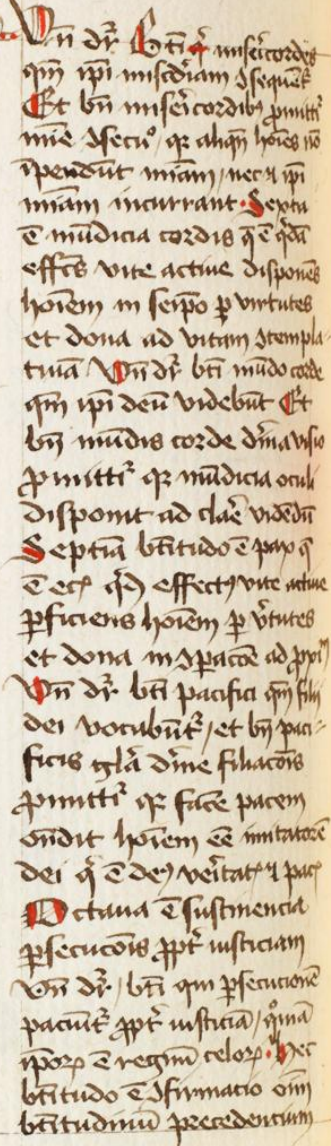 Vn̄ dr̄ Bt̄i qͥ mīsericordes
qm̄ ip̄i mīscdiam ꝯsequent᷑
Et bn̄ miſericordibꝰ ꝓmittit᷑
mīe ꝯsecuᵒ, qꝛ aliqn̄ hoīes nō
īpendūt miām, nec ⁊ ip̄i
miām incurrant. Sexta
ē mūdicia cordis q̄ ē q̄dā
effcūs vite actiue disponēs
hoīem in seip̄o ꝑ virtutes
et dona ad vitam ꝯtempla-
tiuā Vn̄ dr̄ bt̄i mūdo corde
qm̄ ip̄i deū videbūt Et
bn̄ mūdis corde dīna visio
ꝓmittit᷑ qꝛ mūdicia oculi
disponit ad clarē vidēdū
Septiā bt̄itudo ē pax q̄
ē ec̄ q̄dā effectꝰ vite actiue
ꝑficiens hoīem ꝑ v̄tutes
et dona in ꝯꝑacōe ad ꝓxīꝫ
Vn̄ dr̄ bt̄i pacifici qm̄ filij
dei vocabūt᷑, et bn̄ paci-
ficis gl̄a dīne filiacōis
ꝓmittit᷑ qꝛ facē pacem
ōndit hoīem eē imitatorē
dei qͥ ē deꝰ veritatꝭ ⁊ pacꝭ
Octaua ē sustinencia
ꝑsecucōis ꝓpt̄ iusticiam
vn̄ dr̄, bt̄i qui ꝑsecucionē
paciūt᷑ ꝓpt̄ iusticiā, qm̄
ip̄oꝝ ē regnū celoꝝ. Hec
bt̄itudo ē ꝯfirmacio oīm
bt̄itudinū precedentium